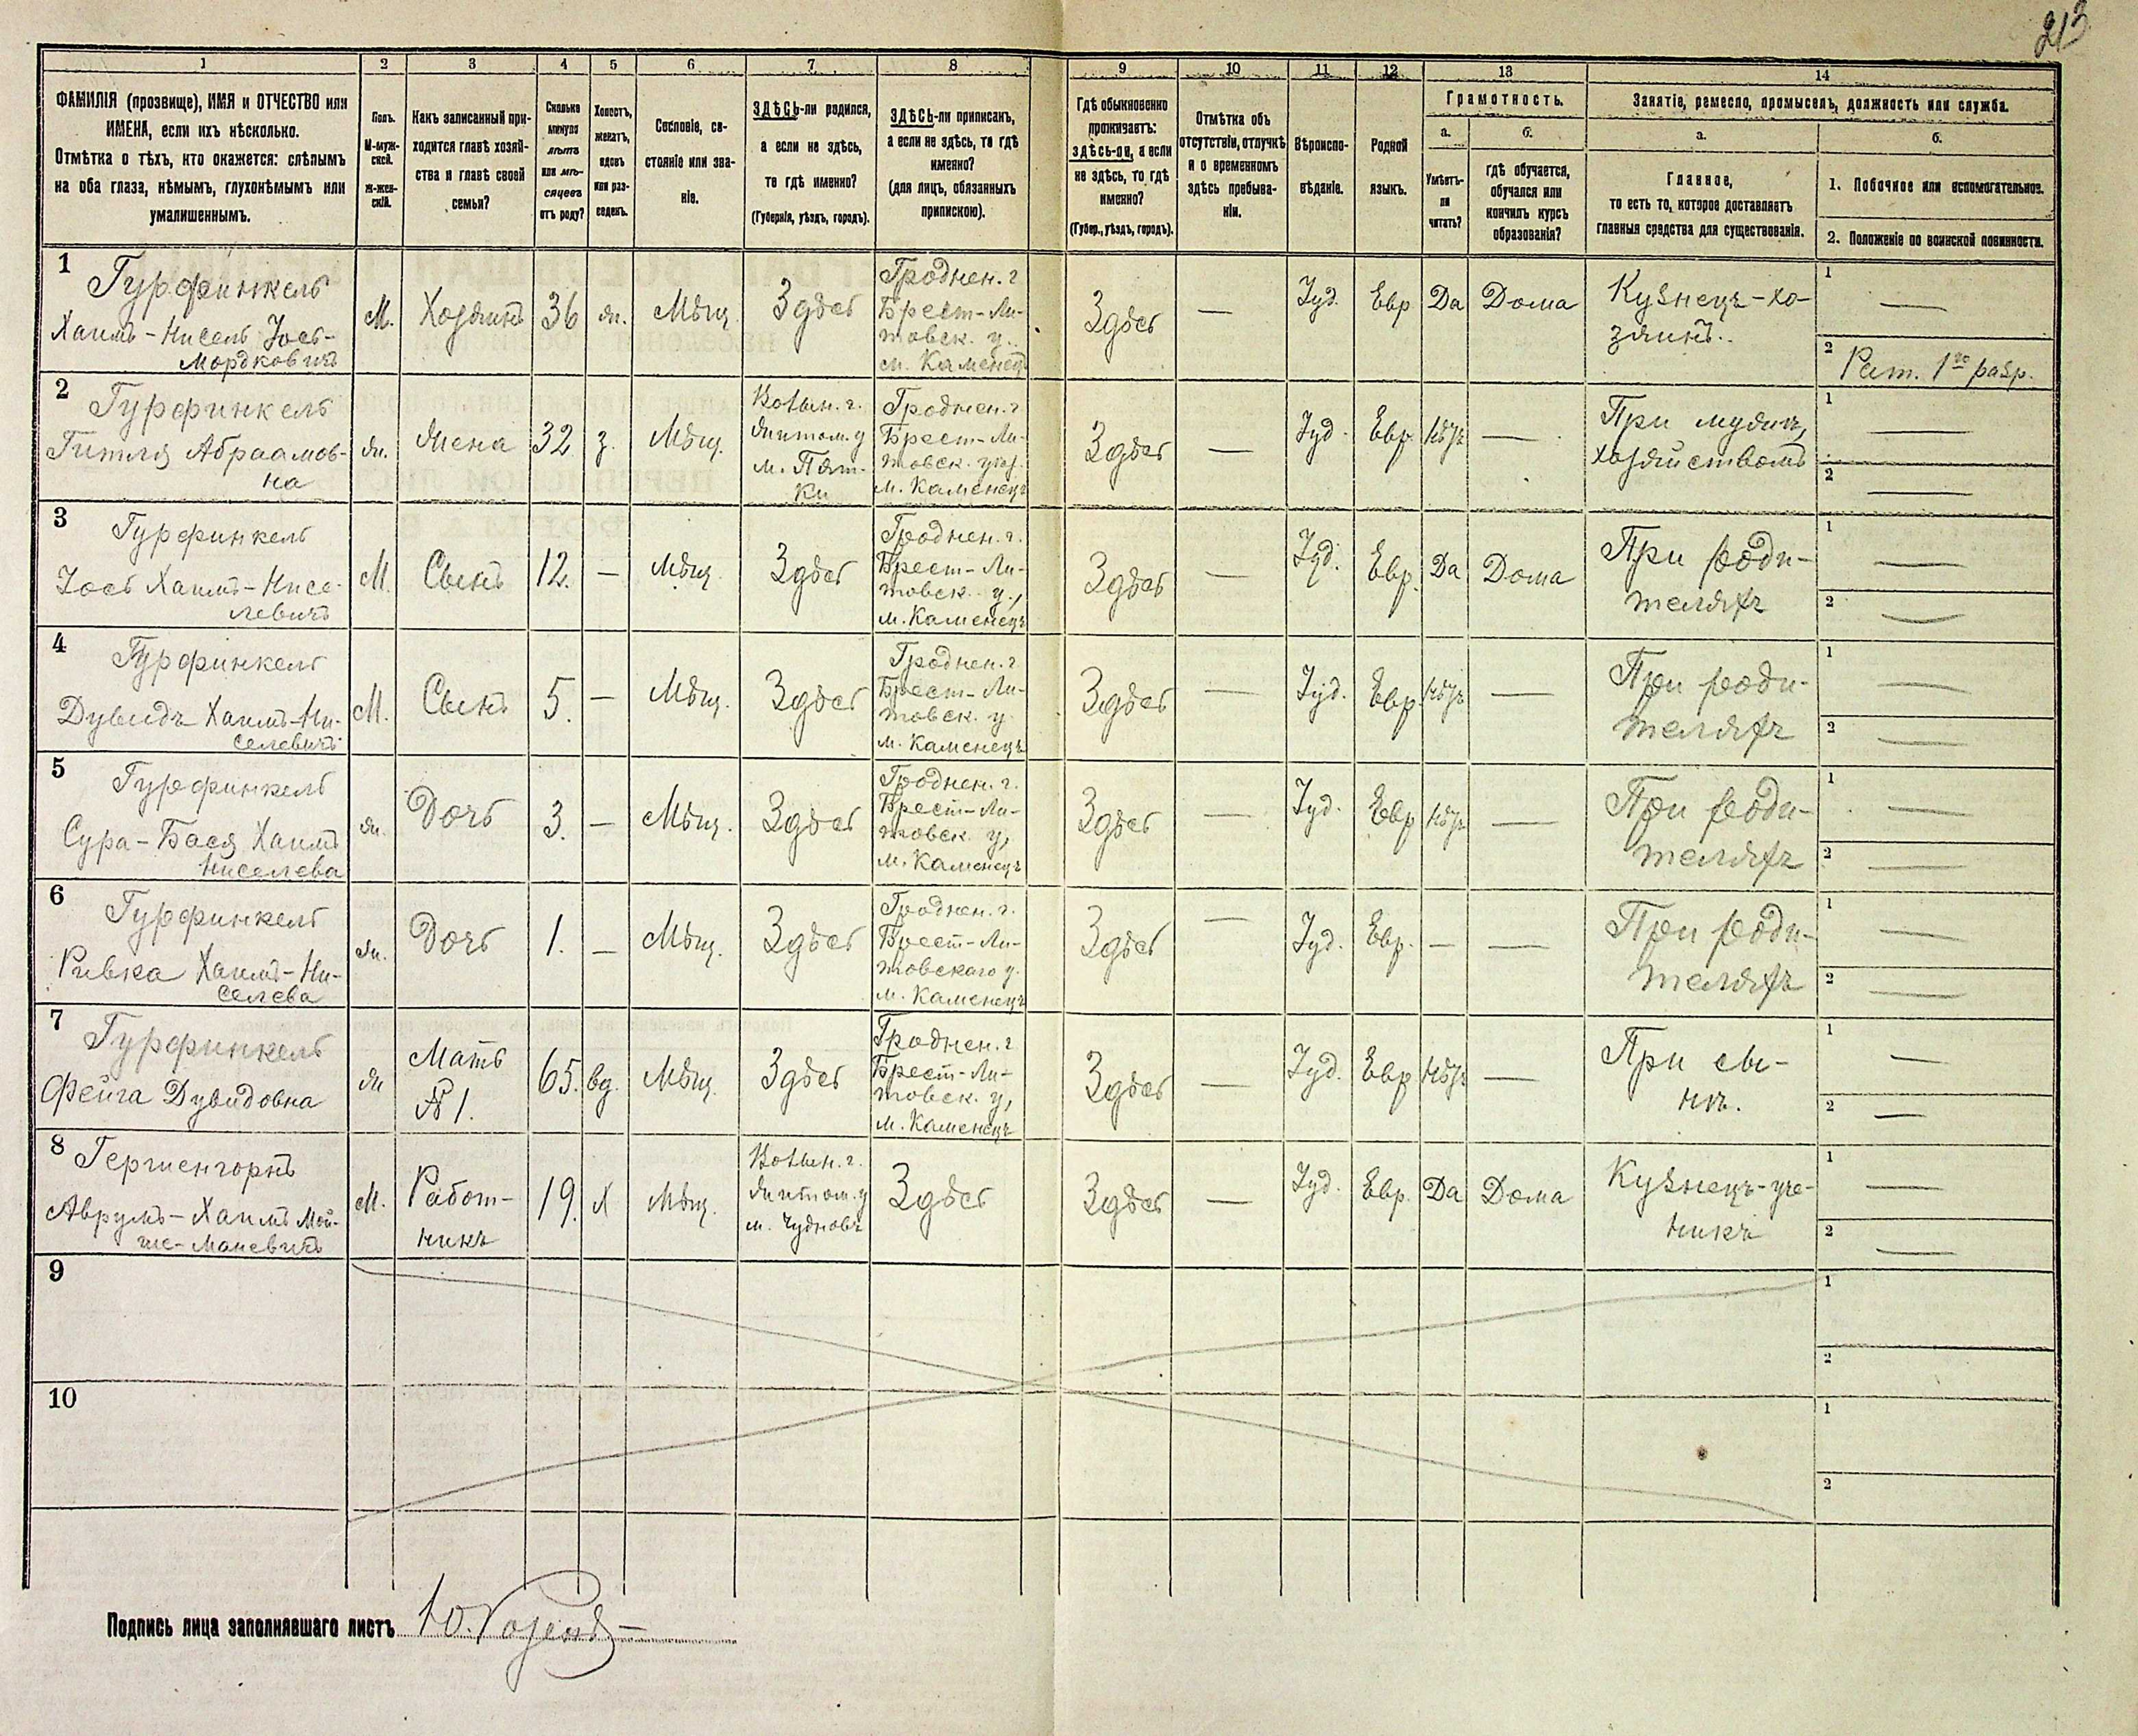 213
1 2 3 4 5 6 7 8 9 10 11 12 13 14
ФАМИЛІЯ (прозвище), ИМЯ и ОТЧЕСТВО или
ИМЕНА, если ихъ нѣсколько.
Отмѣтка о тѣхъ, кто окажется: слѣпымъ
на оба глаза, нѣмымъ, глухонѣмымъ или
умалишеннымъ.
Полъ.
М-муж-
ской.
Ж-жен-
скій.
Какъ записанный при-
ходится главѣ хозяй-
ства и главѣ своей
семьи?
Сколько
минуло
лѣтъ
или мѣ-
сяцевъ
отъ роду?
Холостъ,
женатъ,
вдовъ
или раз-
веденъ.
Сословіе, со-
стояніе или зва-
ніе.
ЗДѢСЬ-ли родился,
а если не здѣсь,
то гдѣ именно?
(Губернія, уѣздъ, городъ).
ЗДѢСЬ-ли приписанъ,
а если не здѣсь, то гдѣ
именно?
(для лицъ, обязанныхъ
припискою).
Гдѣ обыкновенно
проживаетъ:
здѣсь-ли, а если
не здѣсь, то гдѣ
именно?
(Губер., уѣздъ, городъ).
Отмѣтка объ
отсутствіи, отлучкѣ
и о временномъ
здѣсь пребыва-
ніи.
Вѣроиспо-
вѣданіе.
Родной
языкъ.
Грамотность.
а.
Умѣетъ-
ли
читать?
б.
гдѣ обучается,
обучался или
кончилъ курсъ
образованія?
Занятіе, ремесло, промыселъ, должность или служба.
а.
Главное,
то есть то, которое доставляетъ
главныя средства для существованія.
б.
1. Побочное или вспомогательное.
2. Положеніе по воинской повинности.
1
Гурфинкель
Хаимъ-Нисель Іось-
Мордковичъ
М.
Хозяинъ
36
ж.
Мѣщ.
Здѣсь
Гроднен. г
Брест-Ли-
товск. у.
м. Каменецъ
Здѣсь
—
Іуд.
Евр
Да
Дома
Кузнецъ-хо-
зяинъ.
1 —
2 Рат. 1го разр.
2
Гурфинкель
Гитля Абраамов-
на
ж.
Жена
32
з.
Мѣщ.
Волын. г.
Житом. у
м. Пят-
ки
Гроднен. г
Брест-Ли-
товск. уѣз.
м. Каменецъ
Здѣсь
—
Іуд.
Евр.
Нѣтъ
—
При мужѣ,
хозяйствомъ
1 —
2 —
3
Гурфинкель
Іось Хаимъ-Нисе-
левичъ
М.
Сынъ
12.
—
Мѣщ
Здѣсь
Гроднен. г.
Брест-Ли-
товск. у.,
м. Каменецъ
Здѣсь
—
Іуд.
Евр.
Да
Дома
При роди-
теляхъ
1 —
2 —
4
Гурфинкель
Дувидъ Хаимъ-Ни-
селевичъ
М.
Сынъ
5.
—
Мѣщ.
Здѣсь
Гроднен. г
Брест-Ли-
товск. у.
м. Каменецъ
Здѣсь
—
Іуд.
Евр.
Нѣтъ
—
При роди-
теляхъ
1 —
2 —
5
Гурфинкель
Сура-Бася Хаимъ
Ниселева
ж.
Дочь
3.
—
Мѣщ.
Здѣсь
Гроднен. г.
Брест-Ли-
товск. у,
м. Каменецъ
Здѣсь
—
Іуд.
Евр
Нѣтъ
—
При роди-
теляхъ
1 —
2 —
6
Гурфинкель
Ривка Хаимъ-Ни-
селева
ж.
Дочь
1.
—
Мѣщ.
Здѣсь
Гроднен. г.
Брест-Ли-
товскаго у.
м. Каменецъ
Здѣсь
—
Іуд.
Евр.
—
—
При роди-
теляхъ
1 —
2 —
7
Гурфинкель
Фейга Дувидовна
ж
Мать
№ 1.
65.
вд.
Мѣщ.
Здѣсь
Гроднен. г
Брест-Ли-
товск. у,
м. Каменецъ
Здѣсь
—
Іуд.
Евр
Нѣтъ
—
При сы-
нѣ.
1 —
2 —
8
Гершенгорнъ
Аврумъ-Хаимъ Мой-
ше-Маневичъ
М.
Работ-
никъ
19.
Х
Мѣщ.
Волын. г.
Житом. у
м. Чудновъ
Здѣсь
Здѣсь
—
Іуд.
Евр.
Да
Дома
Кузнецъ-уче-
никъ
1 —
2 —
9
1
2
10
1
2
Подпись лица заполнявшаго листъ